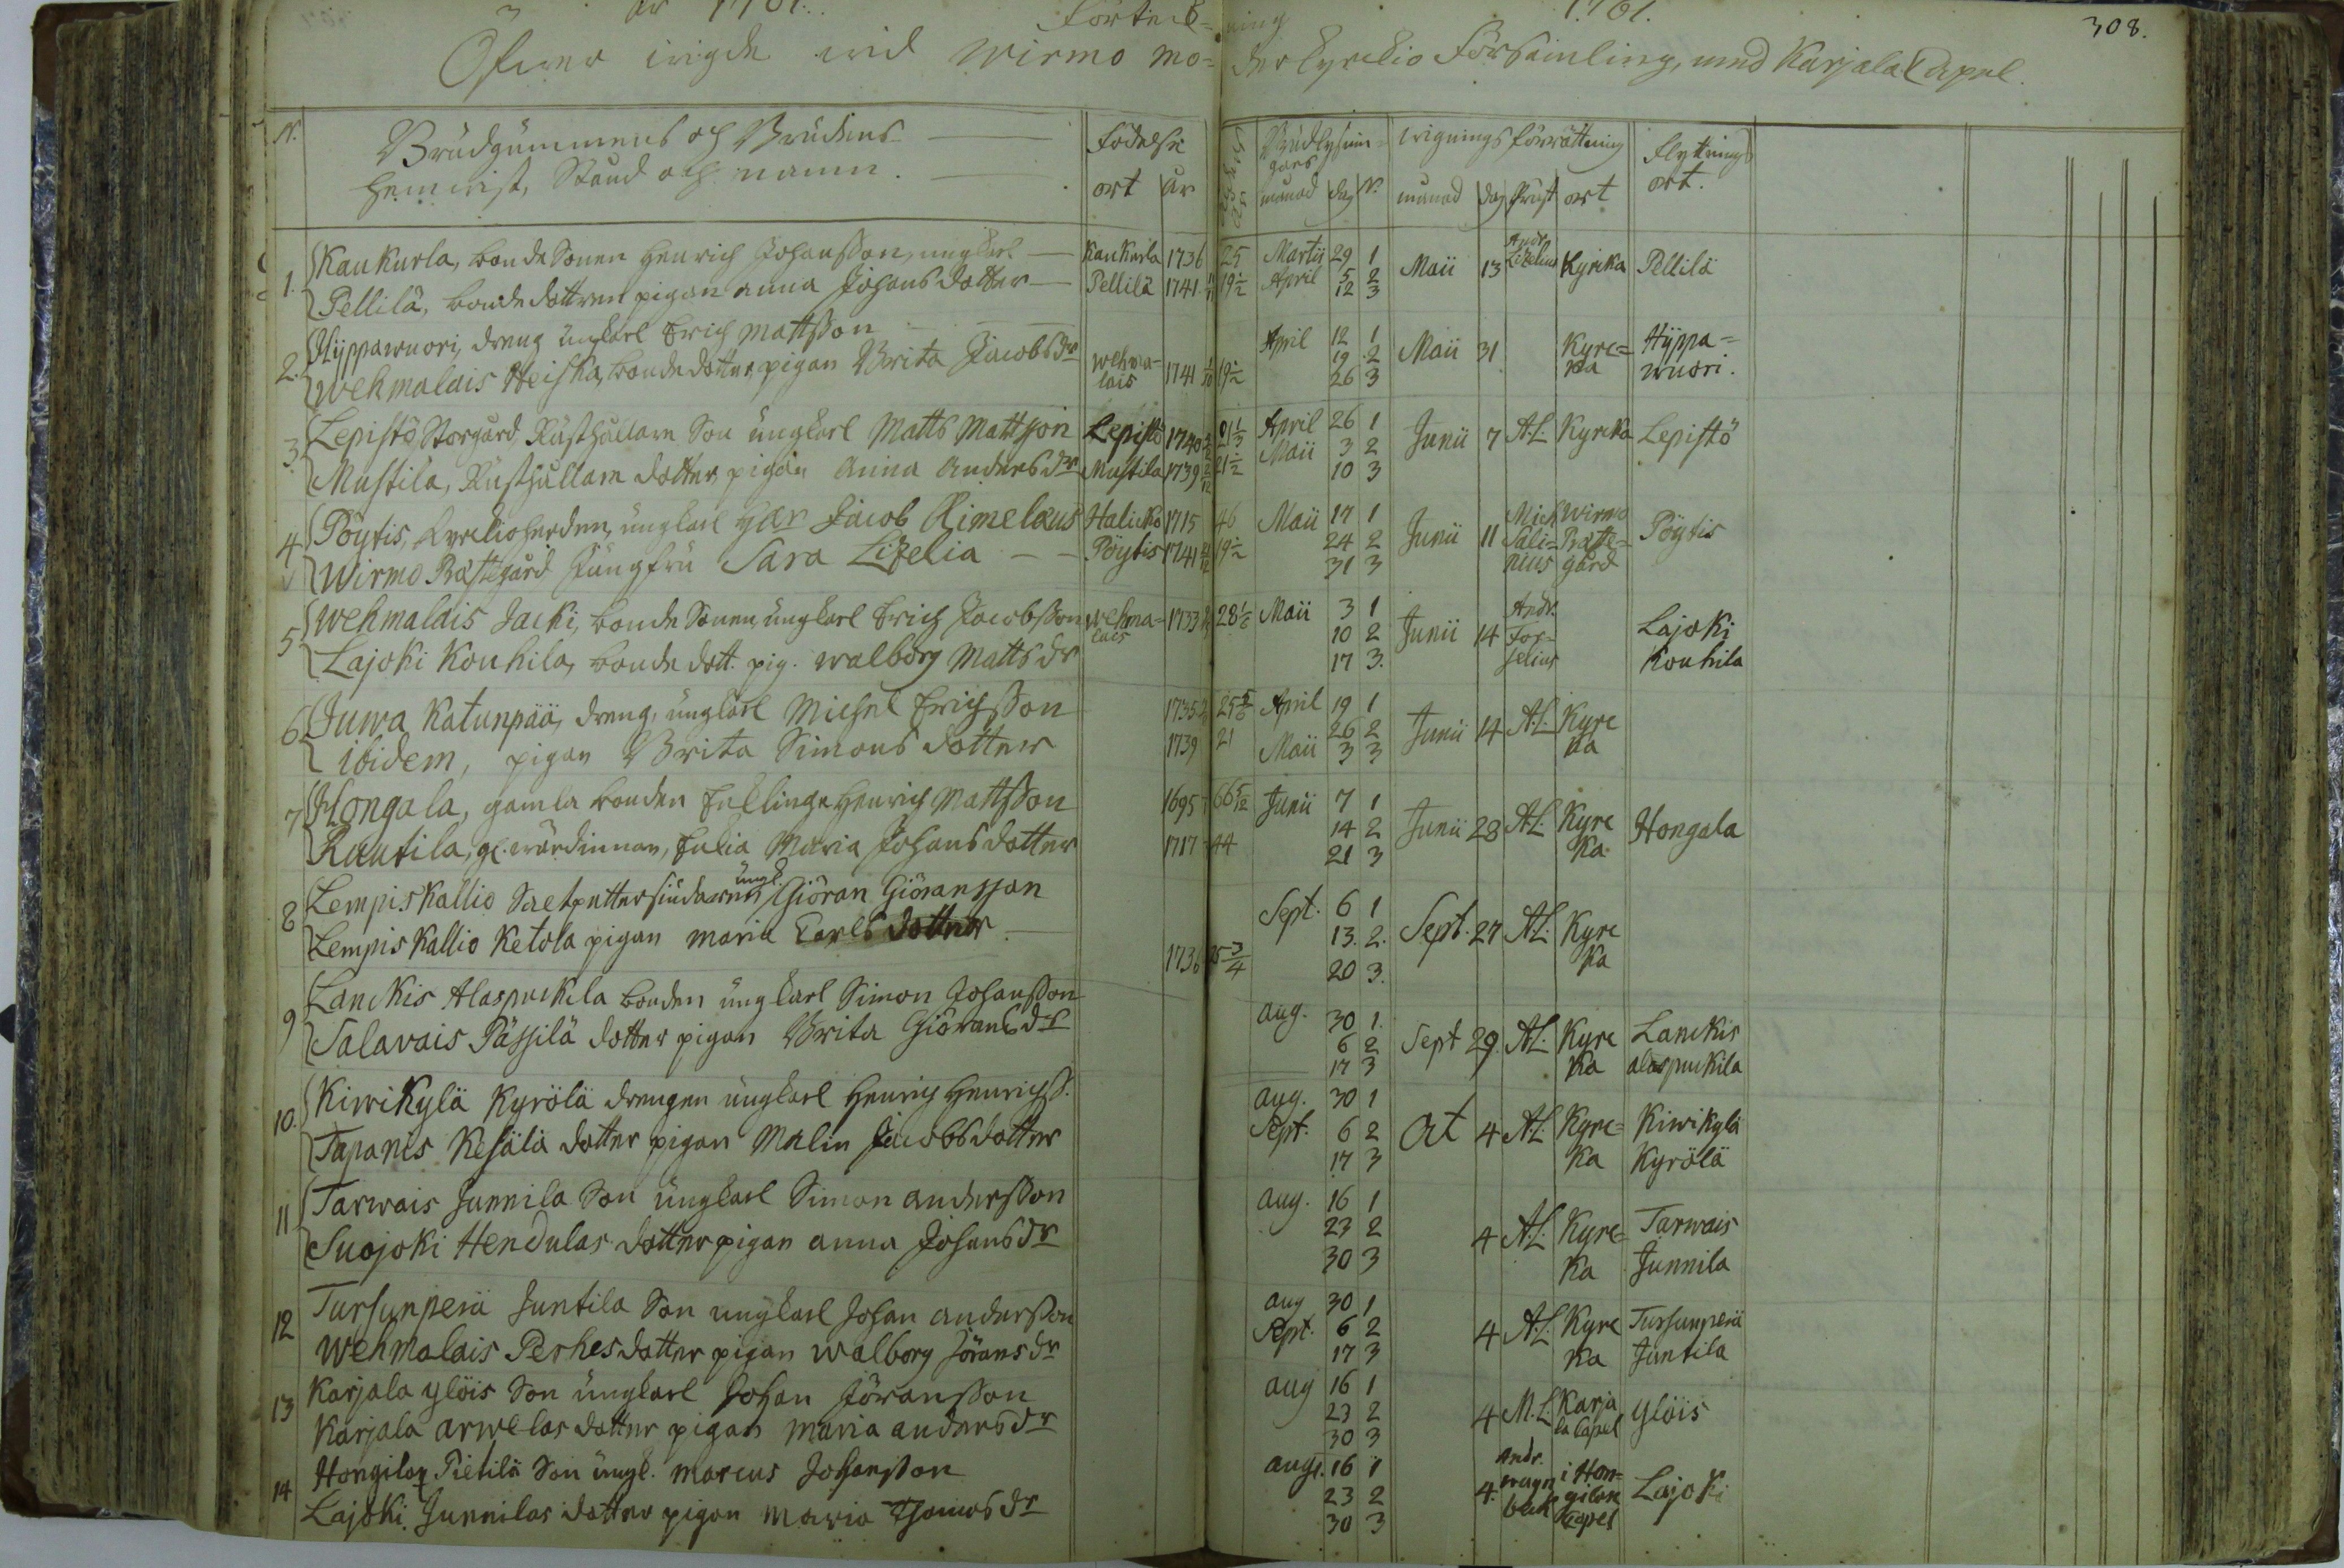 308.
År 1761. Förteck= ning 1761.
Öfwer wigde wid Wirmo Mo= derkyrckio Församling, med Karjala Capel.
N. Brudgummens och Brudens Födelse Brudlysnin= wignings förrättning Flyttnings
hemwist, Stånd och namn. ort år månad dag N. månad dag Präst ort ort.
1. Kaukurla, bonde Sonen Henrich Johansson, ungkarl Kaukurla 1736 25 Martii 29 1 Maii 13 Andr. Lizelius Kyrcka Pellilä
Pellilä, bondedottren pigan Anna Johans dotter Pellilä 1741 19 1/2 April 5 2
12 3
2. Hyppawuori, dreng ungkarl Erich Mattsson April 12 1 Maii 31 Kyrc= Hyppa=
Wehmalais Heiska, bondedotter, pigan Brita Jacobs dr Wehma= lais 1741 19 1/2 19 2 ka wuori.
26 3
3. Lepistö Storgård Rusthållare Son ungkarl Matts Mattsson Lepistö 1740 21 1/3 April 26 1 Junii 7 A.L. Kyrcka Lepistö
Mustila, Rusthållare dotter, pigan Anna Anders dr Mustila 1739 21 1/2 Maii 3 2
10 3
4 Pöytis, Kyrckioherden, ungkarl Herr Jacob Rimelæus Halicko 1715 46 Maii 17 1 Junii 11 Mich Wirmo Pöytis
Wirmo Præstegård Jungfru Sara Lizelia Pöytis 1741 19 1/2 24 2 Sali= Præste=
31 3 nius gård
5 Wehmalais Jacki, bonde Sonen, ungkarl Erich Jacobsson Wehma= lais 1733 28 1/6 Maii 3 1 Junii 14 Andr. Lajoki
Lajoki Kouhila, bonde dott. pig. Walborg Matts dr 10 2 For= Kouhila
17 3. selius
6 Juwa Katunpää, dreng, ungkarl Michel Erichsson 1735 25 5/6 April 19 1 Junii 14 A.L. Kyrc
ibidem, pigan Brita Simons dotter 1739 21 26 2 ka
Maii 3 3
7 Hongala, gamla bonden Enklinge Henrich Mattsson 1695 66 5/12 Junii 7 1 Junii 28 A.L. Kyrc Hongala
Rautila, gl. wärdinnan, Enkia Maria Johans dotter 1717 44 14 2 ka
21 3
8 Lempiskallio Saltpettersiudaren ungk. Giöran Giöransson Sept. 6 1 Sept. 27 A.L. Kyrc
Lempiskallio Ketola pigan Maria Carls dotter 1736 25 3/4 13. 2. ka
20 3.
9 Lanckis Alaspuckila bonden ungkarl Simon Johansson aug. 30 1. Sept 29. A.L. Kyrc Lanckis
Salavais Pässilä dotter pigan Brita Giörans dr 6 2 ka alaspuckila
17 3
10. Kiwikylä Kyrölä drengen ungkarl Henrich Henrichss. aug. 30 1 Oct 4 A.L. Kyrc= Kiwikylä
Tapanis Kesälä dotter pigan Malin Jacobsdotter Sept. 6 2 ka Kyrölä
17 3
11 Tarwais Junnila Son ungkarl Simon Andersson aug. 16 1 4 A.L. Kyrc= Tarwais
Suojoki Hendulas dotter pigan Anna Johans dr 23 2 ka Junnila
30 3
12 Tursunperä Juntila Son ungkarl Johan Andersson aug 30 1 4 A.L. Kyrc Tursunperä
Wehmalais Perhes dotter pigan Walborg Jörans dr Sept. 6 2 ka Juntila
17 3
13 Karjala Ylöis Son ungkarl Johan Jöransson aug 16 1 4 M.L. Karja Ylöis
Karjala Arwelas dotter pigan Maria Anders dr 23 2 la Capel
30 3
14 Hongilax Pietilä Son ungk. Marcus Johansson aug. 16 1 4. Andr. i Hon= Lajoki
Lajoki Junnilas dotter pigan Maria Thomas dr 23 2 wagn gilax
30 3 beck Capel